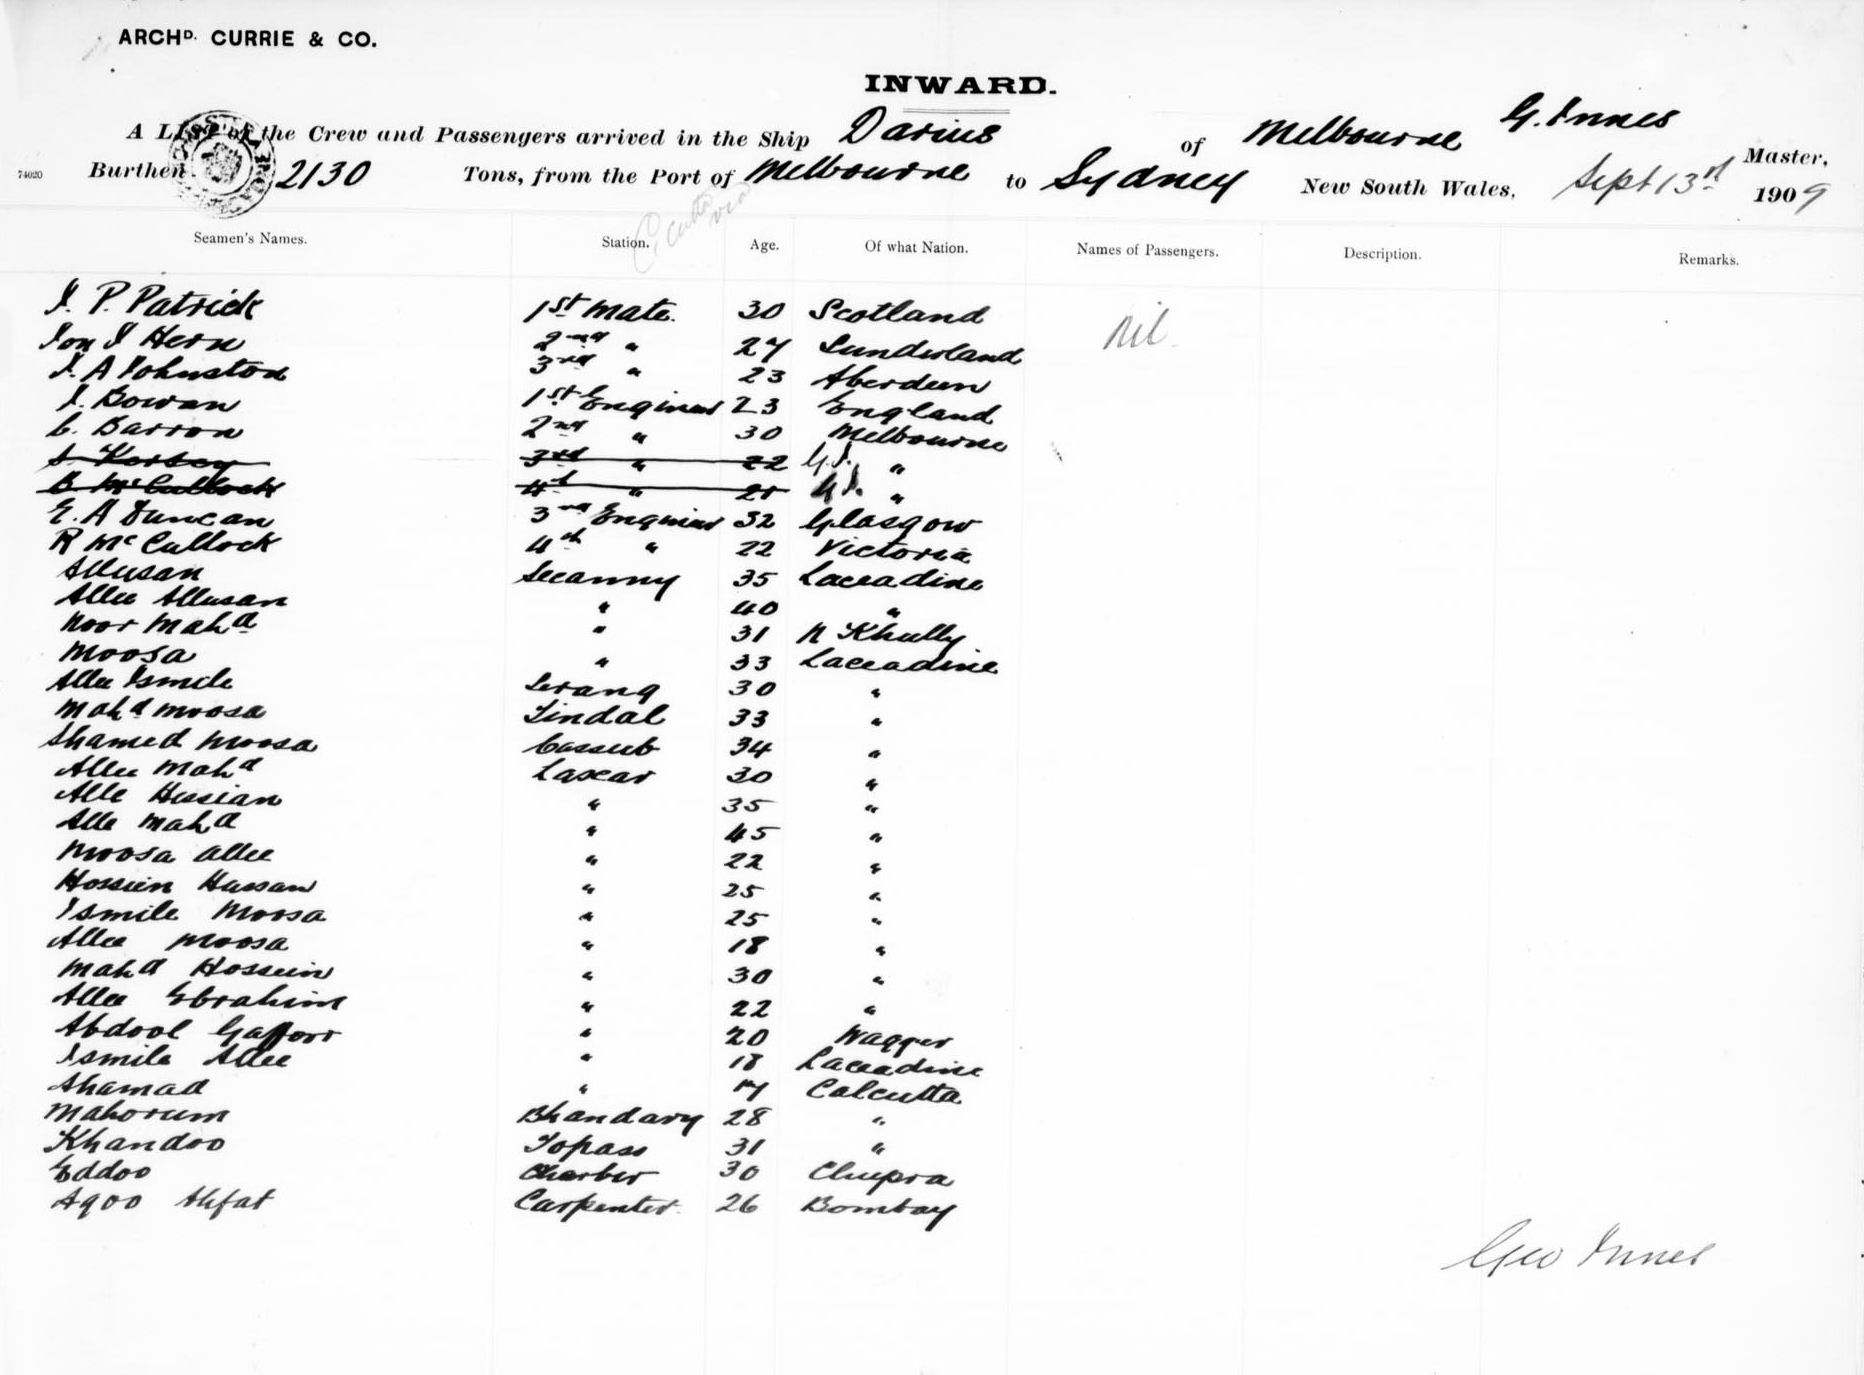 ARCHD. CURRIE & CO.
INWARD.
A LIST of the Crew and Passengers arrived in the Ship Darius of Melbourne G. Innes Master,
74020 Burthen 2130 Tons, from the Port of Melbourne to Sydney New South Wales, Sept 13st 1909
Calcutta via
Seamen's Names. Station. Age. Of what Nation. Names of Passengers. Description. Remarks.
J. P. Patrick 1st Mate. 30 Scotland Nil.
Jon J Hern 2nd " 27 Sunderland
J. A Johnston 3rd " 23 Aberdeen
J. Bowan 1st Engineer 23 England
C. Barron 2nd " 30 Melbourne
S. Kersey 3rd " 22 "
B McCullock 4th " 21 "
E. A Duncan 3rd Engineer 32 Glasgow
R McCullock 4th " 22 Victoria
Allusan Secanny 35 Laccadine
Allee Allusan " 40 "
Noor Mahd " 31 N Khully
Moosa " 33 Laccadine
Allee Ismile Serang 30 "
Mahd Moosa Tindal 33 "
Shamed Moosa Cassub 34 "
Allee Mahd Lascar 30 "
Alle Hussian " 35 "
Alle Mahd " 45 "
Moosa Allee " 22 "
Hossein Hassan " 25 "
Ismile Moosa " 25 "
Allee Moosa " 18 "
Mahd Hossein " 30 "
Allee Ebrahim " 22 "
Abdool Gafforr " 20 Wagger
Ismile Allee " 18 Laccadine
Shamad " 17 Calcutta
Mahorum Bhandary 28 "
Khandoo Topass 31 "
Eddoo 30 Chupra
Agoo Carpenter. 26 Bombay
Geo Innes